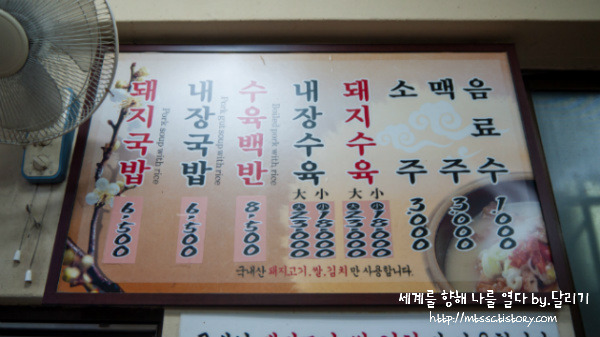 돼지국밥
Pork soup with rice
6,500
내장국밥
Pork gut soup with rice
6,500
수육백반
Boiled pork with rice
8,500
내장수육
大 小
돼지수육
大 小
소주
3,000
맥주
3,000
음료수
1,000
국내산 돼지고기, 쌀, 김치 만 사용합니다.
세계를 향해 나를 열다 by.달리기
http://mtssc.tistory.com/